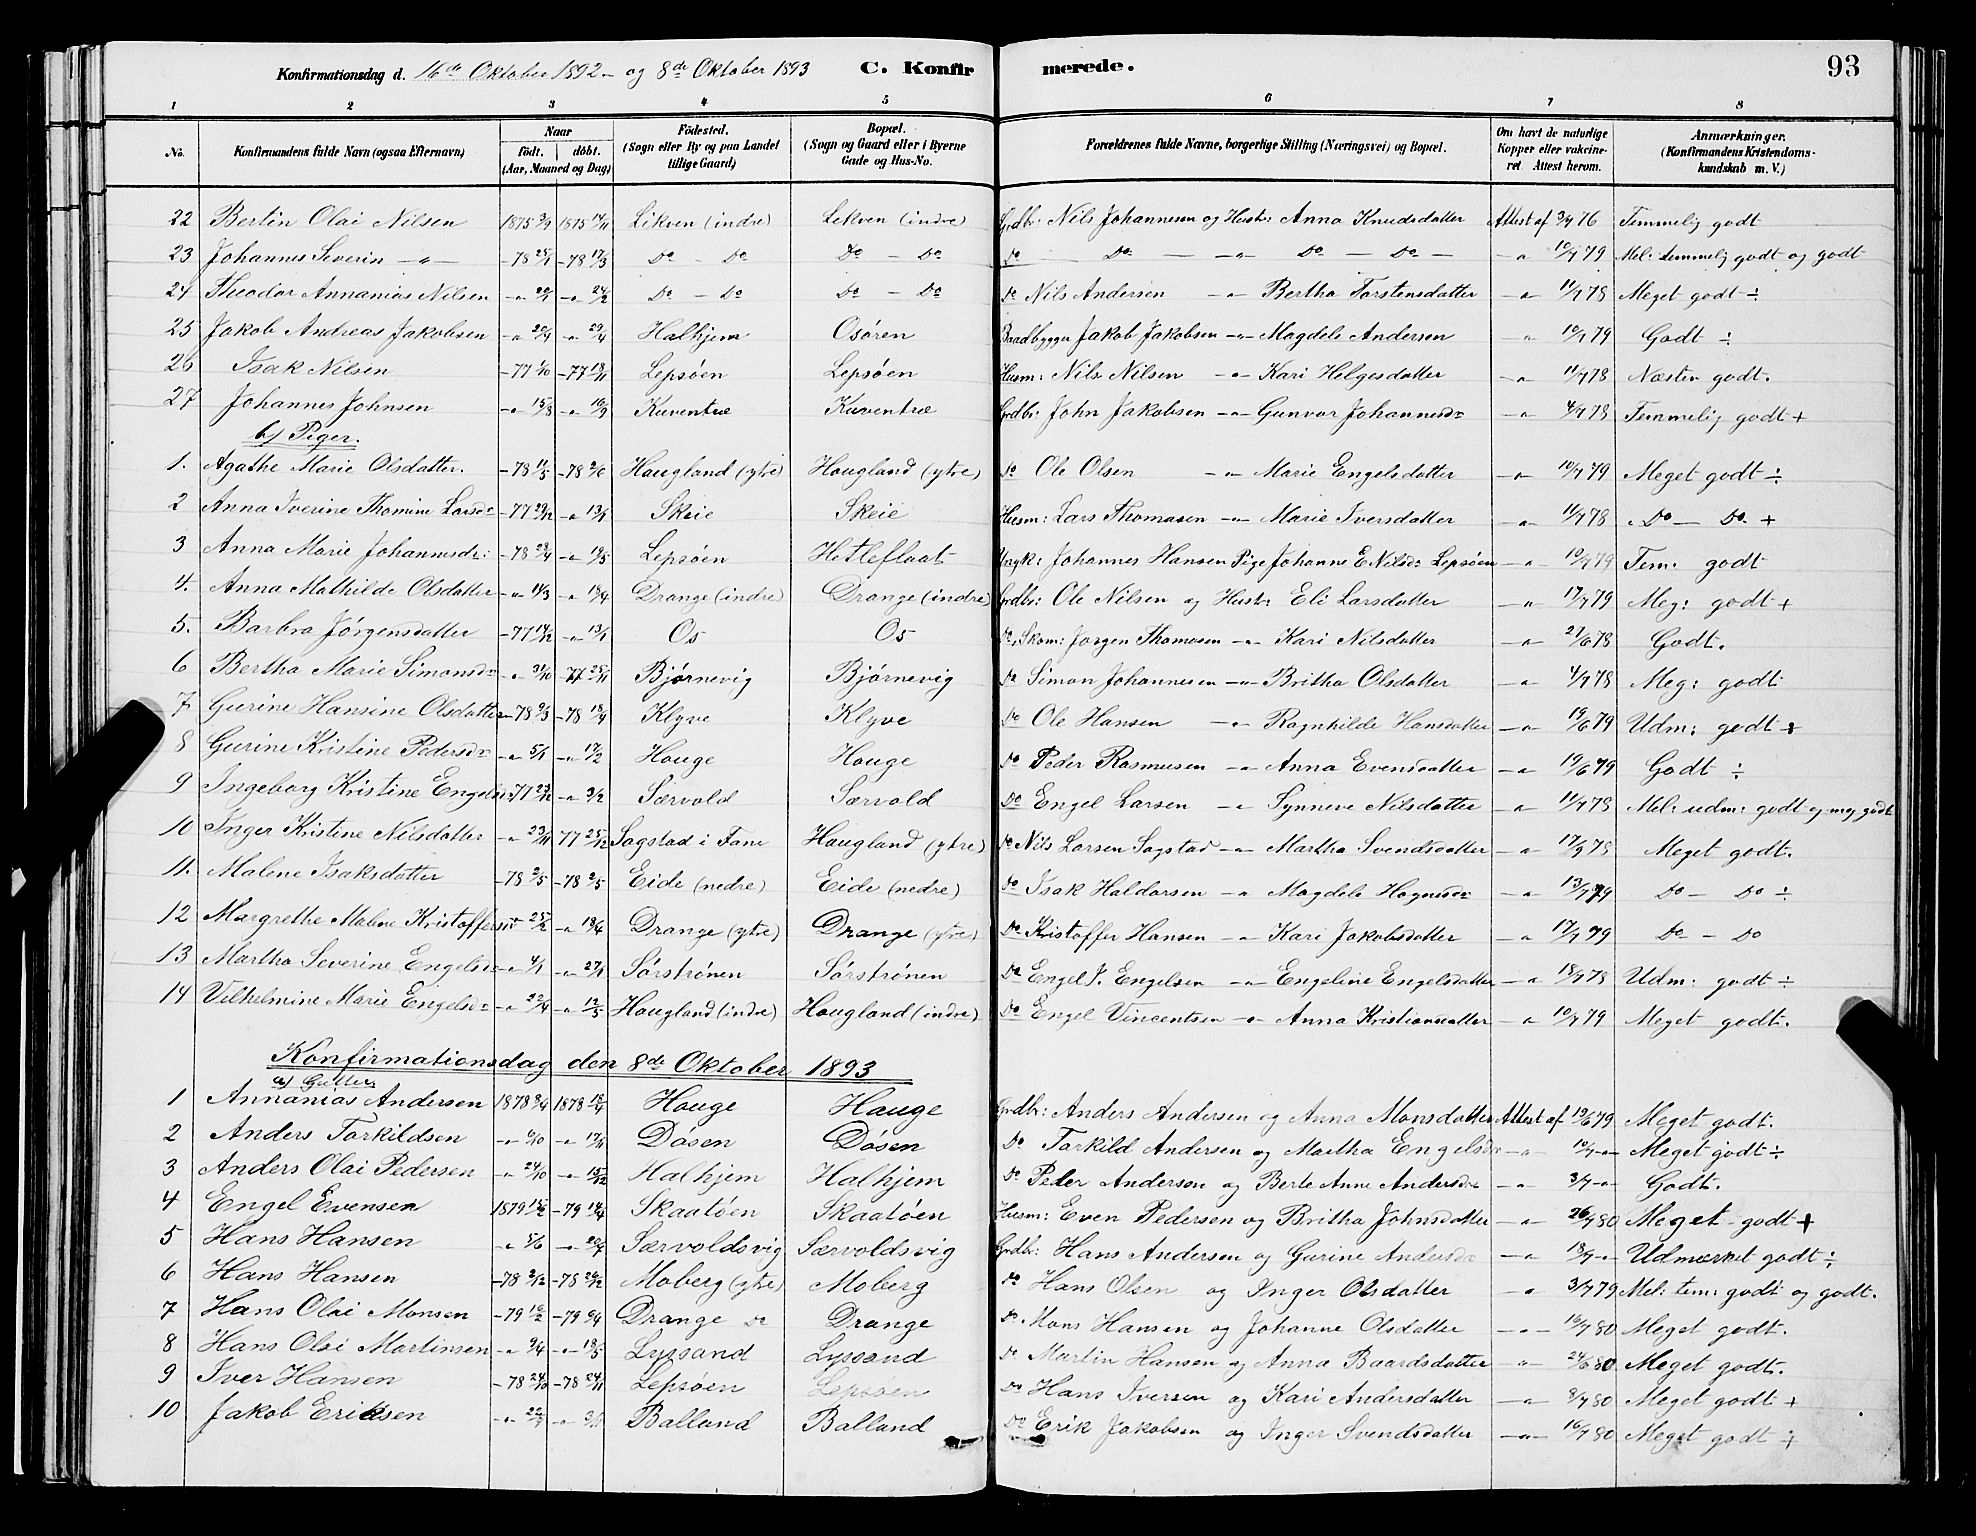 Konfirmationsdag d. 16de Oktober 1892 og 8de Oktober 1893 C. Konfirmerede. 93
1 2 3 4 5 6 7 8
No. Konfirmandens fulde Navn (ogsaa Efternavn) Naar født. døbt. (Aar, Maaned og Dag) Fødested. (Sogn eller By og paa Landet tillige Gaard) Bopæl. (Sogn og Gaard eller i Byerne Gade og Hus-No.) Forældrenes fulde Navne, borgerlige Stilling (Næringsvei) og Bopæl. Om havt de naturlige Kopper eller vakcineret Attest herom. Anmærkninger. (Konfirmandens Kristendomskundskab m. V.)
22 Bertin Olai Nilsen 1875 1875 Likven (indre) Lekven (indre) Grdbr: Nils Johannesen og Hustr: Anna Knudsdatter Attest af 3/7 76 Temmelig godt
23 Johannes Severin -"- -78 25/1 -78 17/3 Do - Do Do - Do Do Do -"- Do - Do - -"- 10/7 79 Mel: temmelig godt og godt
24 Theodor Annanias Nilsen -"- -"- 24/2 Do - Do Do - Do Do Nils Andersen -"- Bertha Torstensdatter -"- 11/7 78 Meget godt ÷
25 Jakob Andreas Jakobsen -"- 20/4 -"- 29/4 Halhjem Osøren Baadbygger Jakob Jakobsen -"- Magdele Andersen " 10/7 79 Godt ÷
26 Isak Nilsen -77 1/10 -77 18/11 Lepsøen Lepsøen Husm: Nils Nilsen -"- Kari Helgesdatter " 11/7 78 Næsten godt.
27 Johannes Johnsen -"- 15/8 -"- 16/9 Kuventræ Kuventræ Grdbr: John Jakobsen -"- Gunvor Johannesdr -"- 4/7 78 Temmelig godt +
b) Piger.
1. Agathe Marie Olsdatter. -78 11/5 -78 2/6 Haugland (ytre) Haugland (ytre) Do Ole Olsen -"- Marie Engelsdatter -"- 10/7 79 Meget godt ÷
2 Anna Iverine Thomine Larsdr -77 29/12 -"- 13/1 Skeie Skeie Husm: Lars Thomasen -"- Marie Iversdatter -"- 11/7 78 Do - Do. +
3 Anna Marie Johannesdr: -78 28/4 -"- 19/5 Lepsøen Hetleflaat Ungk: Johannes Hansen Pige Johanne E Nilsdr Lepsøen -"- 10/7 79 Tem. godt
4. Anna Mathilde Olsdatter -"- 11/3 -"- 19/4 Drange (indre) Drange (indre) Grdbr: Ole Nilsen og Hustr: Eli Larsdatter " 17/7 79 Meg: godt +
5. Barbra Jørgensdatter -77 14/12 -"- 13/1 Os Os Do, Skom: Jørgen Thomasen -"- Kari Nilsdatter -"- 21/6 78 Godt.
6 Bertha Marie Simonsdr -"- 31/10 -77 25/11 Bjørnevig Bjørnevig Do Simon Johannesen -"- Britha Olsdatter -"- 4/7 78 Meg: godt
7 Gurine Hansine Olsdatter -78 9/3 -78 18/4 Klyve Klyve Do Ole Hansen -"- Ragnhilde Hansdatter -"- 19/6 79 Udm: godt +
8 Gurine Kristine Pedersdr -"- 5/1 -"- 17/2 Hauge Hauge Do Peder Rasmusen -"- Anna Evensdatter -"- 19/6 79 Godt ÷
9 Ingeborg Kristine Engelsdr -77 23/12 -"- 3/2 Særvold Særvold Do Engel Larsen -"- Synneve Nilsdatter -"- 11/7 78 Mel: udm: godt og meg godt
10 Inger Kristene Nilsdatter -"- 23/11 77 25/12 Sagstad i Fane Haugland (ytre) Do Nils Larsen Sagstad -"- Martha Svendsdatter -"- 17/9 78 Meget godt.
11. Malene Isaksdatter -78 2/5 -78 Eide (nedre) Eide (nedre) Do Isak Haldorsen -"- Magdele Hognesdr -"- 13/7 79 Do - Do ÷
12 Margrethe Malene Kristoffersdr -"- 25/2 -"- 18/4 Drange (ytre) Drange (ytre) Do Kristoffer Hansen -"- Kari Jakobsdatter -"- 17/7 79 Do - Do
13 Martha Severine Engelsdr -"- 4/1 -"- 27/1 Sørstrønen Sørstrønen Do Engel P. Engelsen -"- Engeline Engelsdatter -"- 18/7 78 Udm: godt ÷
14 Vilhelmine Marie Engelsdr -"- 22/4 -"- 12/5 Haugland (indre) Haugland (indre) Do Engel Vincentsen -"- Anna Kristiansdatter -"- 10/7 79 Meget godt.
Konfirmationsdag den 8de Oktober 1893
a) Gutter
1 Annanias Andersen 1878 1878 18/4 Hauge Hauge Grdbr: Anders Andersen og Anna Monsdatter Attest af 19/6 79 Meget godt.
2 Anders Torkildsen -"- 6/10 -"- 17/11 Døsen Døsen Do Torkild Andersen og Martha Engelsdr -"- 10/7 -"- Meget godt ÷
3 Anders Olai Pedersen -"- 24/10 -"- 15/12 Halhjem Halhjem Do Peder Andersen og Berte Anne Andersdr -"- 3/7 -"- Godt.
4 Engel Evensen 1879 15/2 -79 14/4 Skaatøen Skaatøen Husm: Even Pedersen og Britha Johnsdatter -"- 26/7 80 Meget godt +
5 Hans Hansen -"- 5/6 -"- 20/7 Særvoldsvig Særvoldsvig Grdbr: Hans Andersen og Gurine Andersdr -"- 18/7 -"- Udmærket godt ÷
6 Hans Hansen -78 2/12 -78 26/12 Moberg (ytre) Moberg Do Hans Olsen og Inger Olsdatter -"- 3/7 79 Mel: tem: godt og godt.
7 Hans Olai Monsen -79 16/2 -79 6/4 Drange Do Drange Do Mons Hansen og Johanne Olsdatter -"- 16/7 80 Meget godt.
8 Hans Olai Martinsen -"- 9/4 -"- 18/5 Lyssand Lyssand Do Martin Hansen og Anna Baardsdatter -"- 24/6 80 Meget godt.
9 Iver Hansen -78 24/10 -78 24/11 Lepsøen Lepsøen Do Hans Iversen og Kari Andersdatter -"- 8/7 80 Meget godt +
10 Jakob Eriksen -"- -"- Balland Balland Do Erik Jakobsen og Inger Svendsdatter -"- 16/7 80 Meget godt ÷